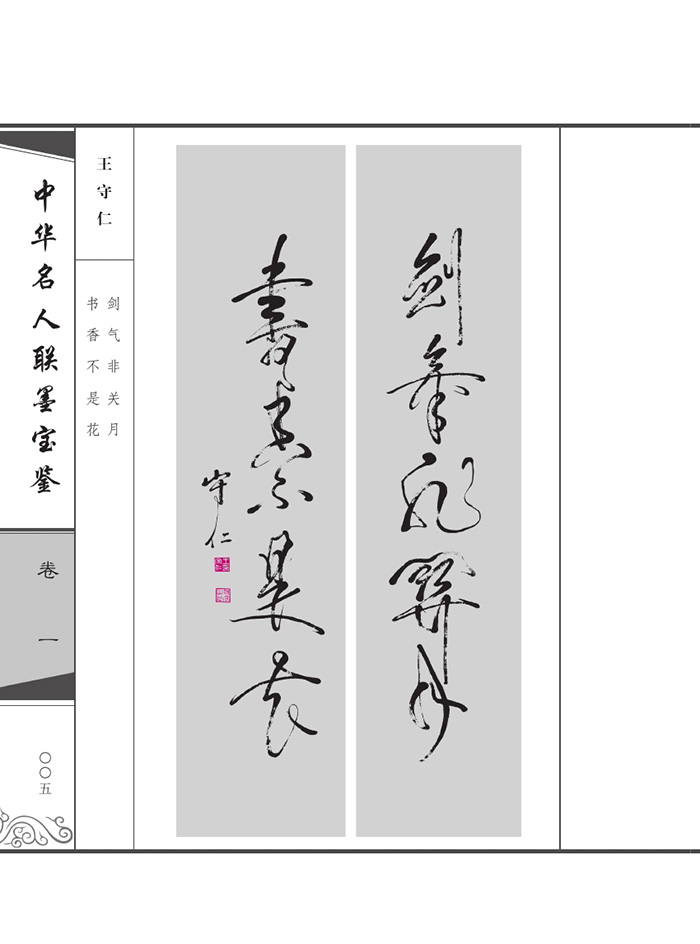 中华名人联墨宝鉴
卷一
〇〇五
王守仁
剑气非关月
书香不是花
剑气非關月
書香不是花
守仁